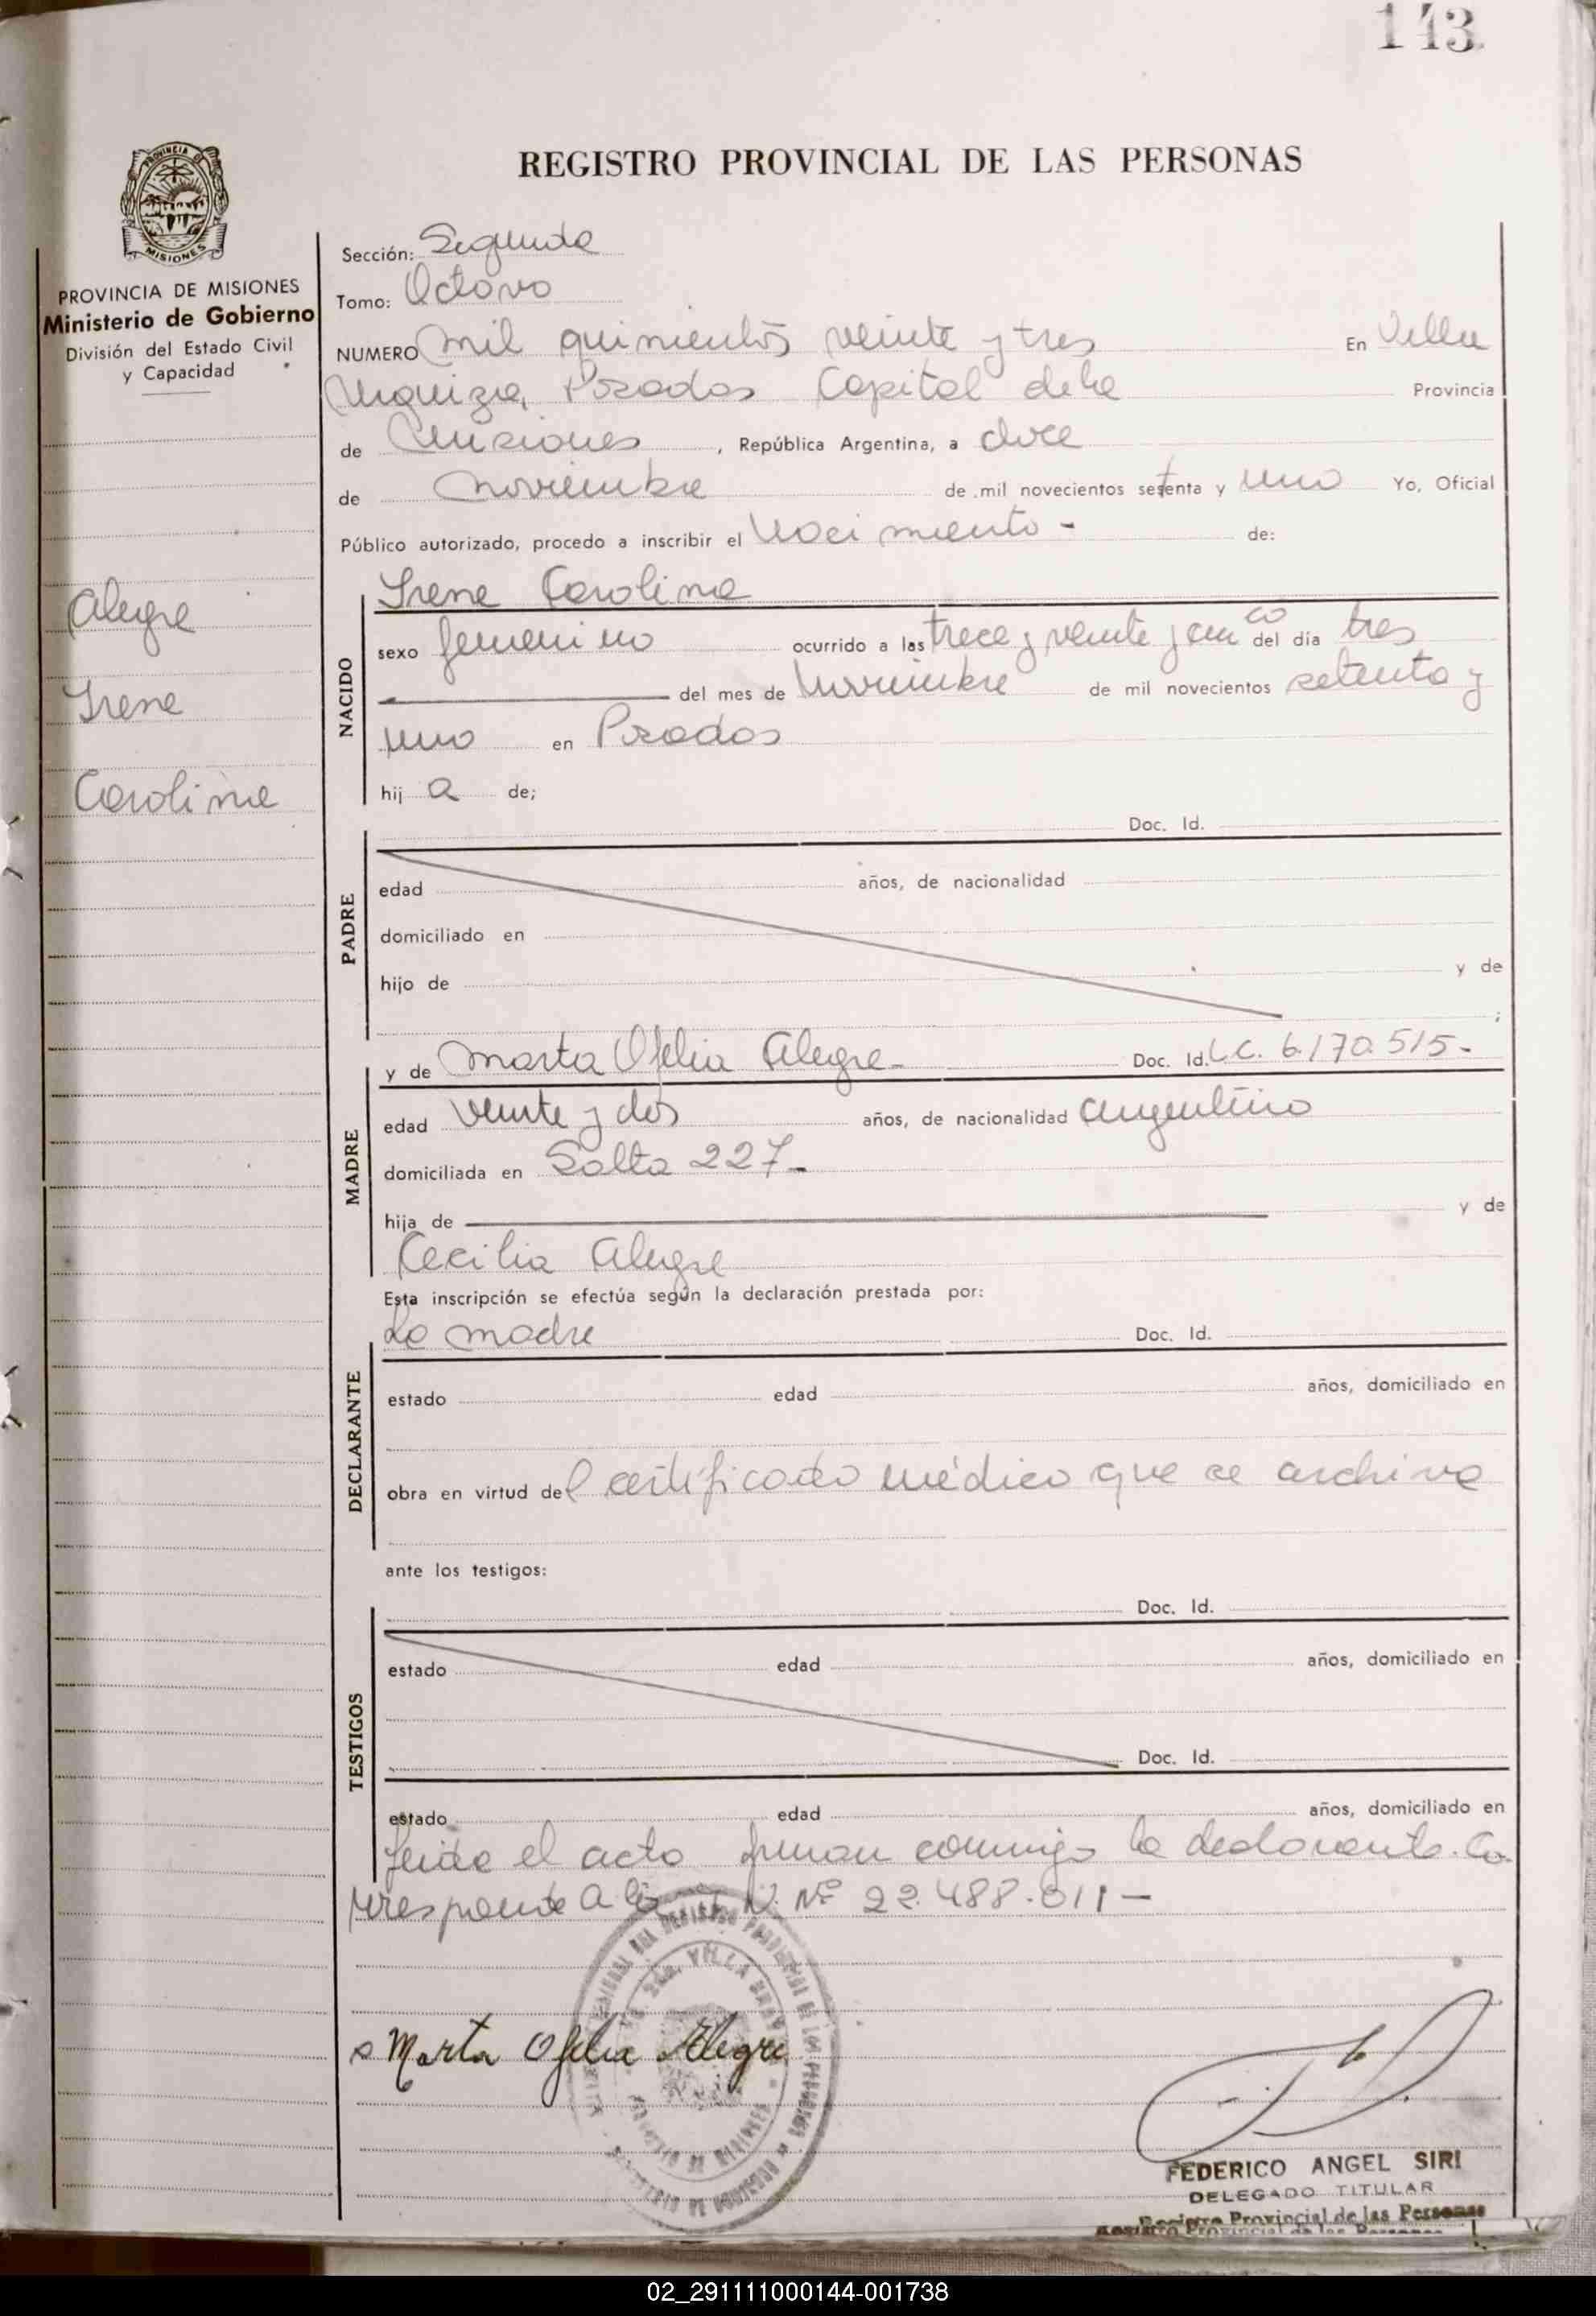 143
REGISTRO PROVINCIAL DE LAS PERSONAS
PROVINCIA DE
MISIONES
PROVINCIA DE MISIONES
Ministerio de Gobierno
División del Estado Civil
y Capacidad
Alegre
Irene
Caroline
Sección: Segunda
Tomo: Octavo
NUMERO mil quinientos veinte y tres En Villa
Urquiza, Posadas Capital de la Provincia
de Misiones, República Argentina, a doce
de noviembre de mil novecientos setenta y uno Yo, Oficial
Público autorizado, procedo a inscribir el Nacimiento - de:
NACIDO
Irene Carolina
sexo femenino ocurrido a las trece y veinte y cinco del día tres
del mes de Noviembre de mil novecientos setenta y
uno en Posadas
hij a de;
PADRE
Doc. Id.
edad años, de nacionalidad
domiciliado en
hijo de y de
;
MADRE
y de Marta Ofelia Alegre - Doc. Id. L.C. 6.170.515-
edad veinte y dos años, de nacionalidad argentino
domiciliada en Salta 227-
hija de y de
Cecilia Alegre
Esta inscripción se efectúa según la declaración prestada por:
DECLARANTE
La madre Doc. Id.
estado edad años, domiciliado en
obra en virtud del certificado médico que se archiva
ante los testigos:
TESTIGOS
Doc. Id.
estado edad años, domiciliado en
Doc. Id.
estado edad años, domiciliado en
Leída el acta firman conmigo la declarante. Co
rresponde a la Nº 22.488.011-
Marta Ofelia Alegre
FEDERICO ANGEL SIRI
DELEGADO TITULAR
Registro Provincial de las Personas
02_291111000144-001738